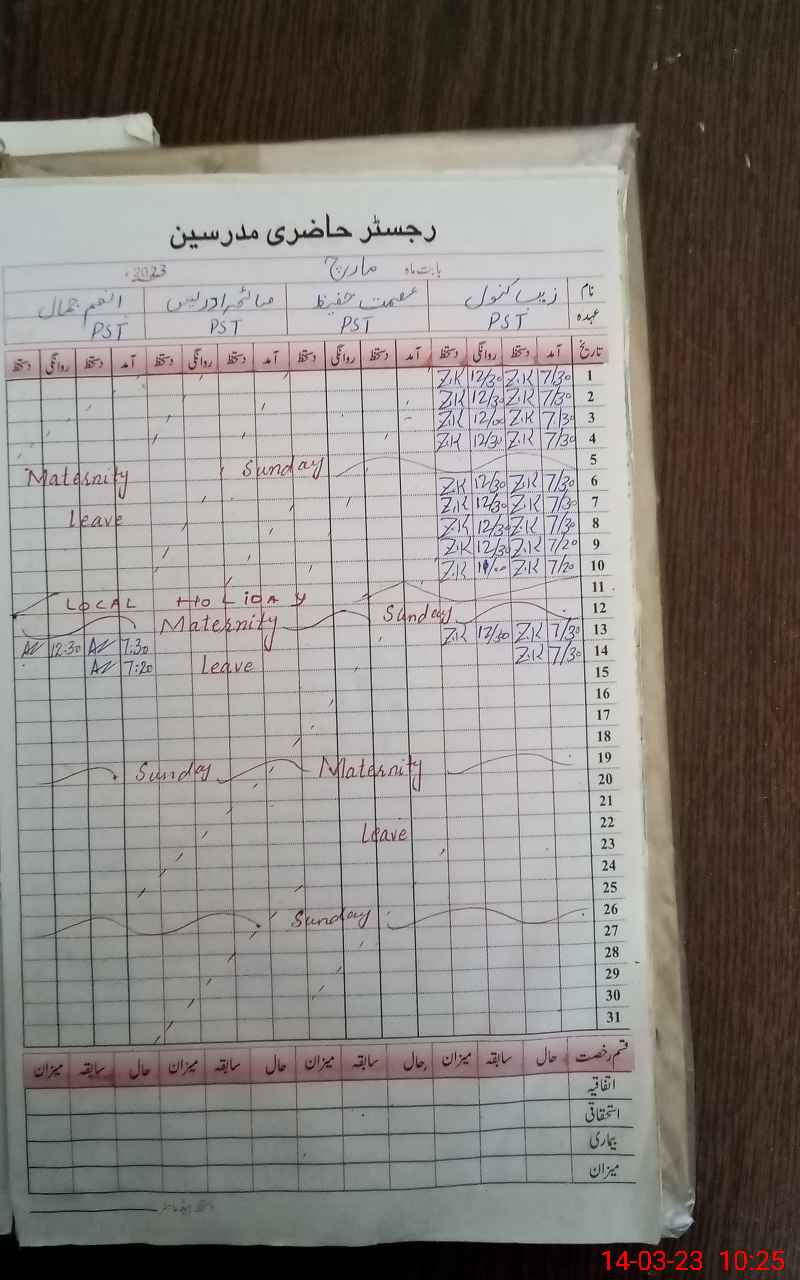 رجسٹر حاضری مدرسین
بابت ماہ مارچ 2023ء
نام زیب کنول عصمت حفیظ صائمہ ادریس انعم جمال
عہدہ PST PST PST PST
تاریخ آمد دستخط روانگی دستخط آمد دستخط روانگی دستخط آمد دستخط روانگی دستخط آمد دستخط روانگی دستخط
1 7/30 Z.K 12/30 Z.K
2 7/30 Z.K 12/30 Z.K
3 7/30 Z.K 12/00 Z.K
4 7/30 Z.K 12/30 Z.K
5 Sunday
Maternity
6 7/30 Z.K 12/30 Z.K
7 7/30 Z.K 12/30 Z.K
Leave
8 7/30 Z.K 12/30 Z.K
9 7/20 Z.K 12/30 Z.K
10 7/20 Z.K Z.K
11 LOCAL HOLIDAY
12 Sunday
Maternity
13 7/30 Z.K 12/30 Z.K 7:30 AZ 12:30 AZ
14 7/30 Z.K 7:20 AZ
Leave
15
16
17
18
19 Sunday Maternity
20
21
22
Leave
23
24
25
26 Sunday
27
28
29
30
31
قسم رخصت حال سابقہ میزان حال سابقہ میزان حال سابقہ میزان حال سابقہ میزان
اتفاقیہ
استحقاقی
بیماری
میزان
دستخط ہیڈ ماسٹر
14-03-23 10:25